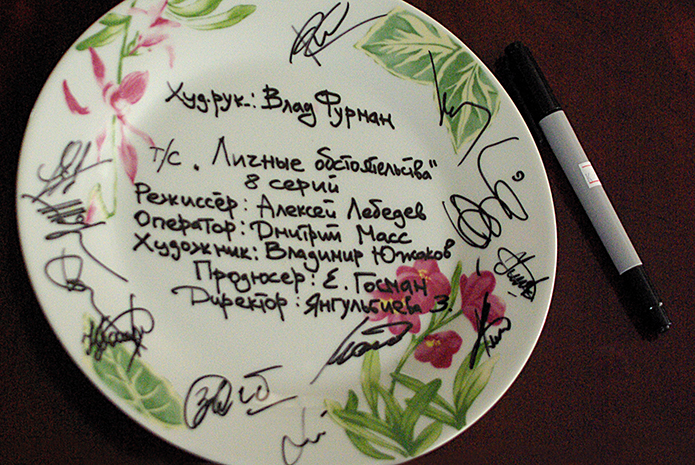 Худ.рук.: Влад Фурман
т/с „Личные обстоятельства"
8 серий
Режиссёр: Алексей Лебедев
Оператор: Дмитрий Масс
Художник: Владимир Южаков
Продюсер: Е. Госман
Директор: Янгульбиева З.